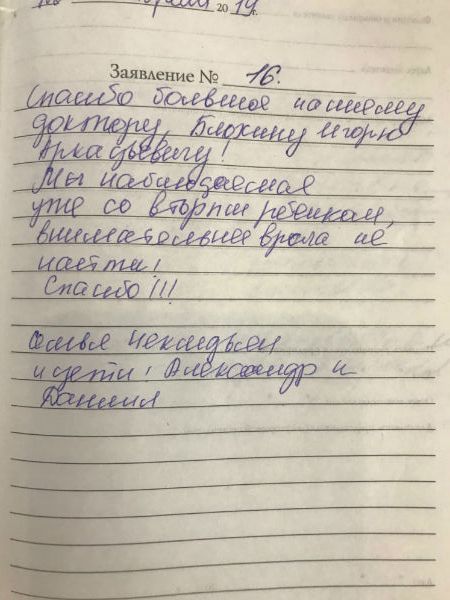 апреля 2019 г.
Заявление № 16.
Спасибо большое нашему
доктору, Блохину Игорю
Аркадьевичу!
Мы наблюдаемся
уже со вторым ребенком,
внимательнее врача не
найти!
Спасибо!!!
Семья
и дети: Александр и
Даниил